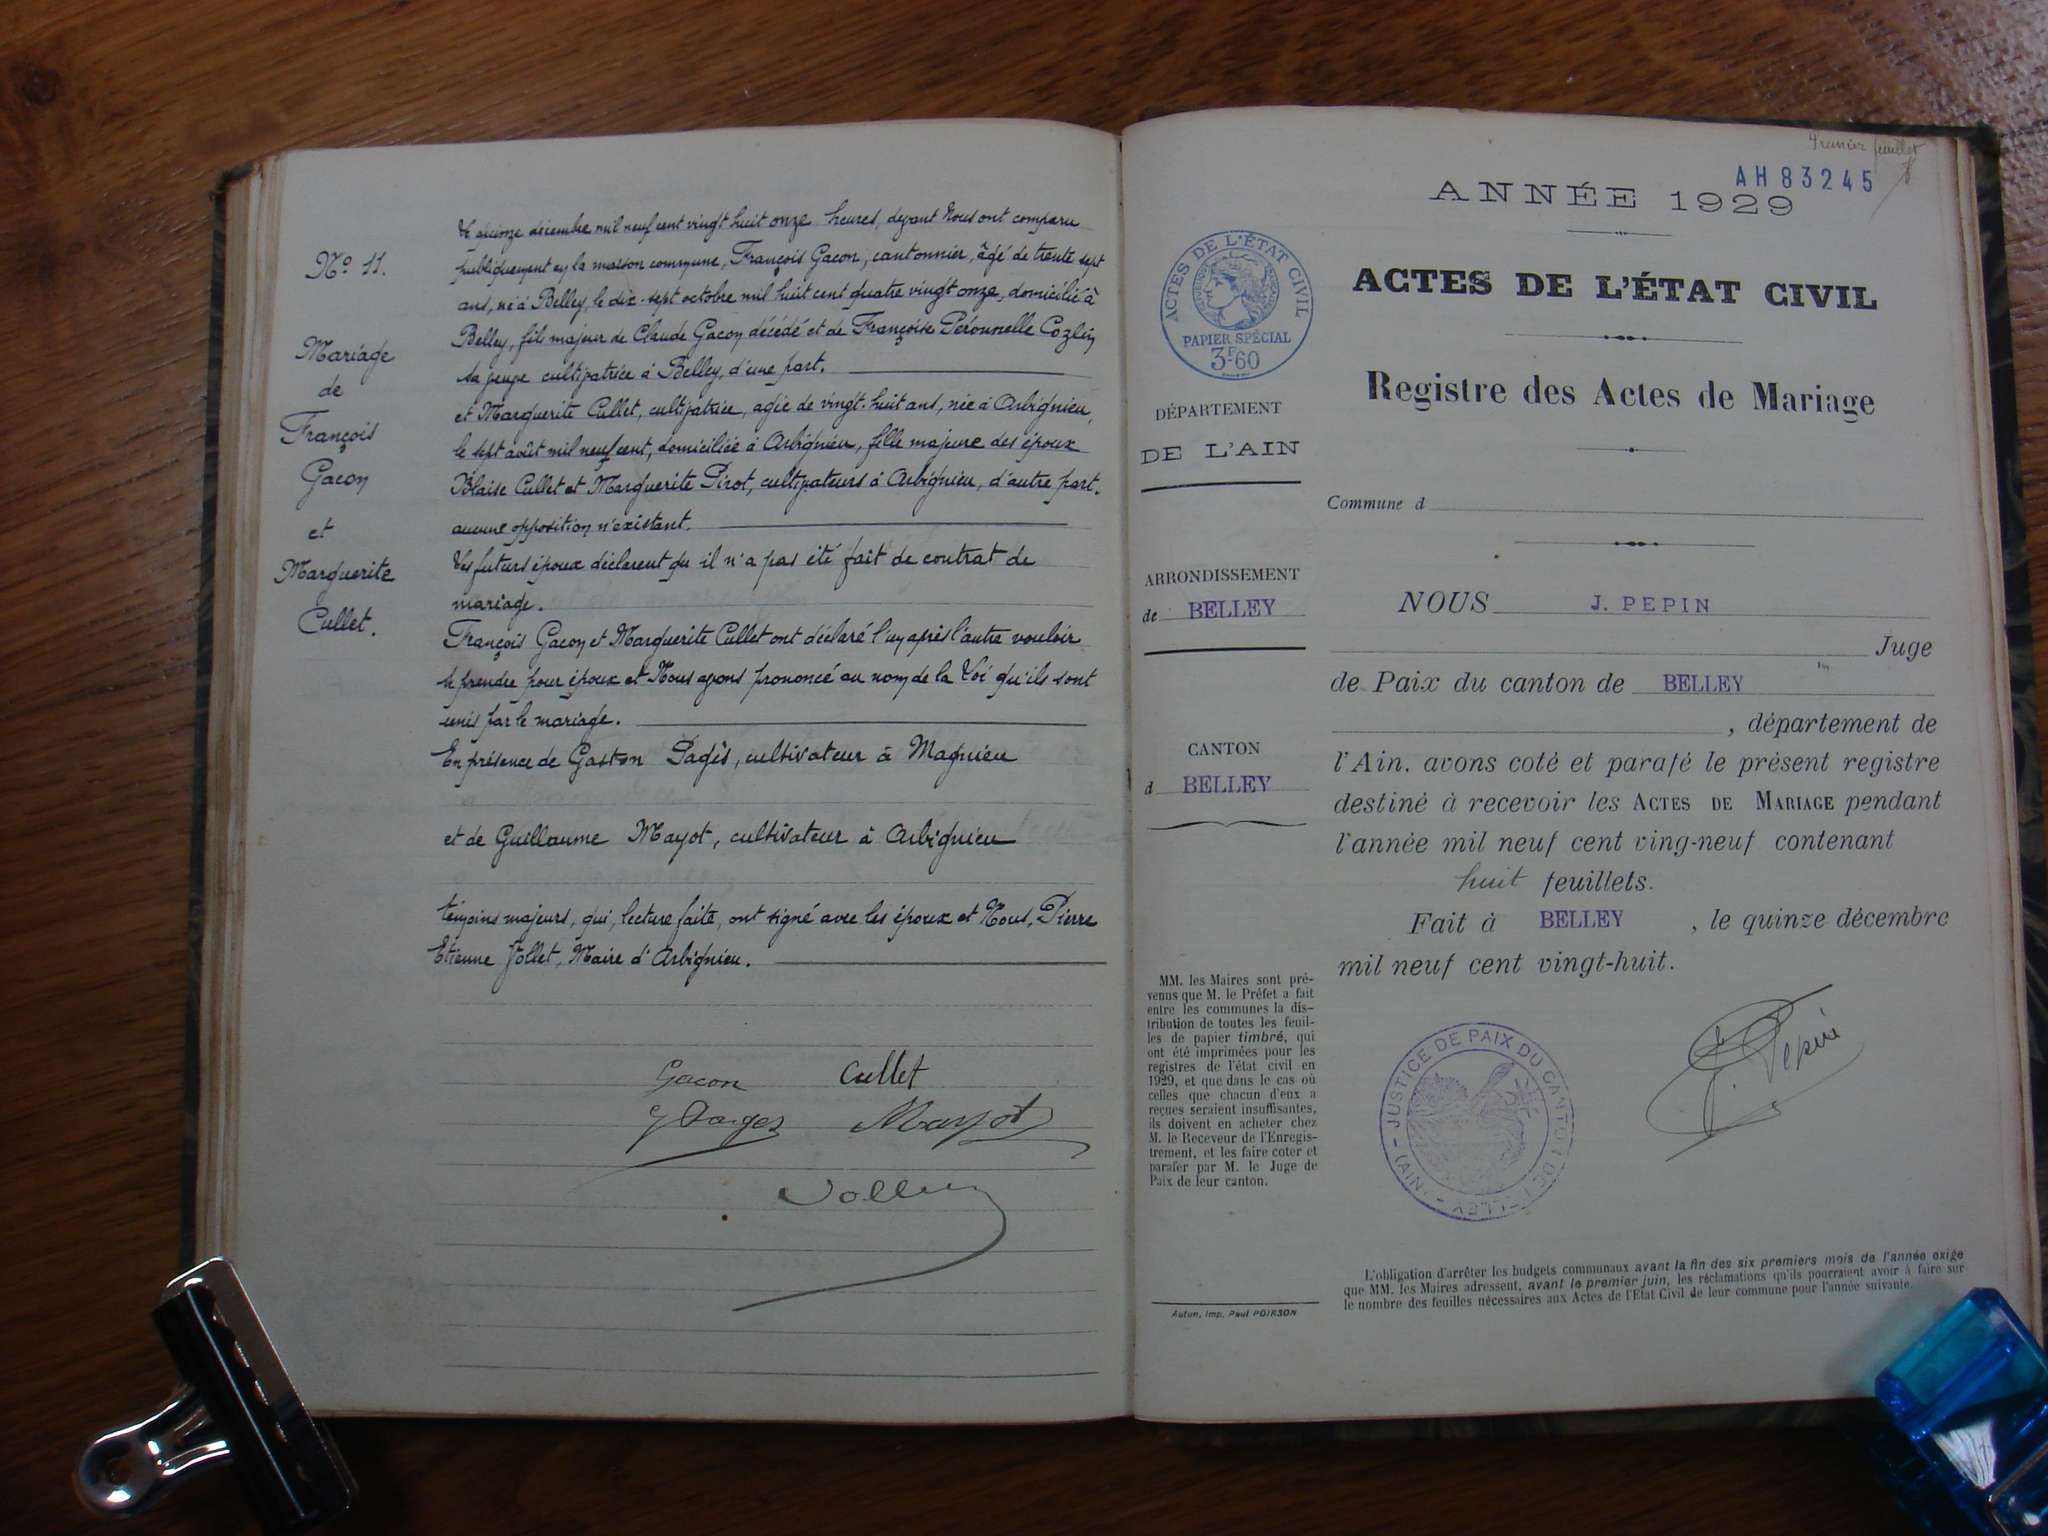 Nº 11.
Mariage
de
François
Gacon
et
Marguerite
Cullet.
Le quinze décembre mil neuf cent vingt huit onze heures, devant Nous ont comparu
publiquement en la maison commune, François Gacon, cantonnier, âgé de trente sept
ans, né à Belley, le dix-sept octobre mil huit cent quatre vingt onze, domicilié à
Belley, fils majeur de Claude Gacon décédé et de Françoise Péronnelle Cozlin
sa veuve cultivatrice à Belley, d'une part.
et Marguerite Cullet, cultivatrice, agée de vingt-huit ans, née à Arbignieu,
le sept août mil neuf cent, domiciliée à Arbignieu, fille majeure des époux
Blaise Cullet et Marguerite Pirot, cultivateurs à Arbignieu, d'autre part.
aucune opposition n'existant.
Les futurs époux déclarent qu'il n'a pas été fait de contrat de
mariage.
François Gacon et Marguerite Cullet ont déclaré l'un après l'autre vouloir
se prendre pour époux et Nous avons prononcé au nom de la Loi qu'ils sont
unis par le mariage.
En présence de Gaston Pagès, cultivateur à Magnieu
et de Guillaume Mayot, cultivateur à Arbignieu
témoins majeurs, qui, lecture faite, ont signé avec les époux et Nous, Pierre
Etienne Jollet, Maire d'Arbignieu.
Gacon Cullet
Premier feuillet
AH 83245
ANNÉE 1929
ACTES DE L'ÉTAT CIVIL
Registre des Actes de Mariage
ACTES DE L'ÉTAT CIVIL
PAPIER SPÉCIAL
3F60
DÉPARTEMENT
DE L'AIN
ARRONDISSEMENT
de BELLEY
CANTON
d BELLEY
Commune d
NOUS J. PEPIN
Juge
de Paix du canton de BELLEY
, département de
l'Ain, avons coté et parafé le présent registre
destiné à recevoir les ACTES DE MARIAGE pendant
l'année mil neuf cent ving-neuf contenant
huit feuillets.
Fait à BELLEY , le quinze décembre
mil neuf cent vingt-huit.
MM. les Maires sont pré-
venus que M. le Préfet a fait
entre les communes la dis-
tribution de toutes les feuil-
les de papier timbré, qui
ont été imprimées pour les
registres de l'état civil en
1929, et que dans le cas où
celles que chacun d'eux a
reçues seraient insuffisantes,
ils doivent en acheter chez
M. le Receveur de l'Enregis-
trement, et les faire coter et
parafer par M. le Juge de
Paix de leur canton.
Autun, Imp. Paul POIRSON
JUSTICE DE PAIX DU CANTON DE BELLEY - (AIN) -
J. Pepin
L'obligation d'arrêter les budgets communaux avant la fin des six premiers mois de l'année exige
que MM. les Maires adressent, avant le premier juin, les réclamations qu'ils pourraient avoir à faire sur
le nombre des feuilles nécessaires aux Actes de l'Etat Civil de leur commune pour l'année suivante.